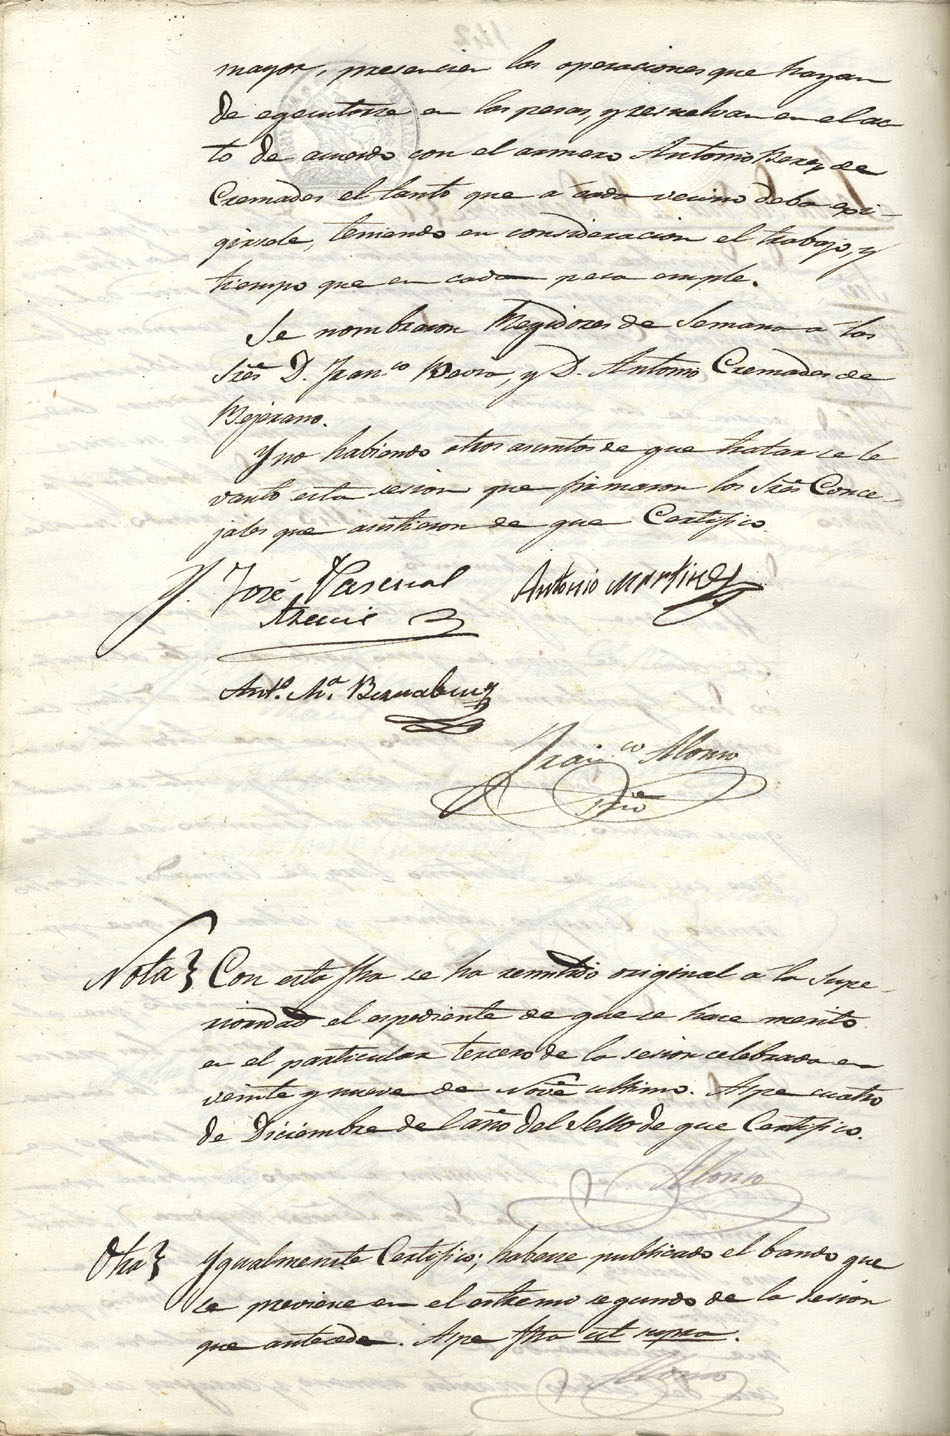 mayor, presencien las operaciones que hayan
de egecutarse en las pesas, y resuelvan en el ac-
to de acuerdo con el armero Antonio Perez de
Cremades el tanto que a cada vecino deba exi-
girsele, teniendo en consideracion el trabajo, y
tiempo que en cada pesa emple.
Se nombraron Regidores de Semana a los
Sres D. Franco y D. Antonio Cremades de
Bejerano.
Y no habiendo otros asuntos de que tratar se le
vanto esta sesion que firmaron los Sres Conce-
jales que asistieron de que Certifico.
José Pascual
Antonio Martinez
Anto. Ma. Bernabeu
Franco Alonso
Srio
Nota} Con esta fha se ha remitido original a la Supe-
rioridad el espediente de que se hace merito
en el particular tercero de la sesion celebrada en
veinte y nueve de Nove ultimo. Aspe cuatro
de Diciembre del año del Sello de que Certifico.
Alonso
Otra} Ygualmente Certifico; haberse publicado el bando que
se previene en el estremo segundo de la sesion
que antecede. Aspe fha ut supra.
Alonso